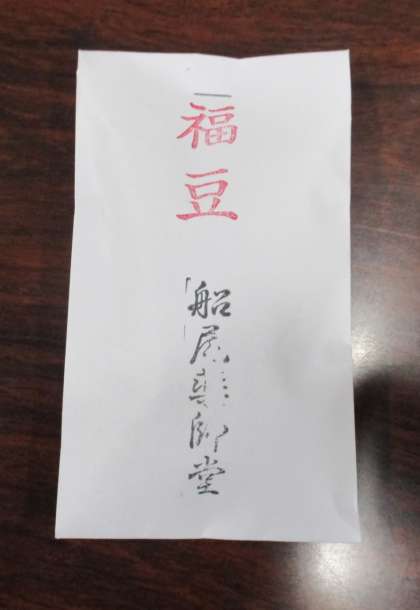 福豆
船尾薬師堂